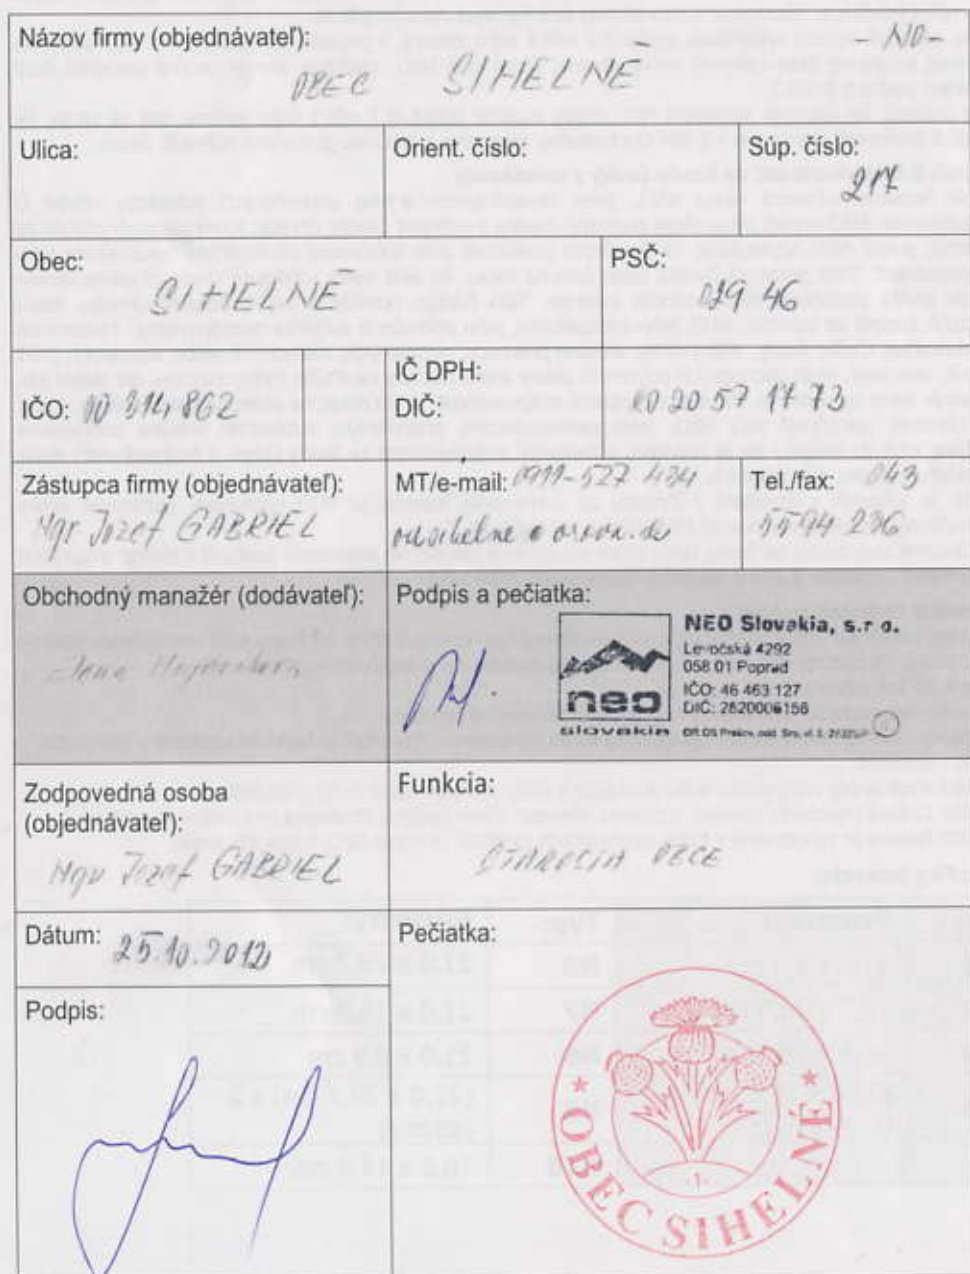 Názov firmy (objednávateľ): - NO -
OBEC SIHELNÉ
Ulica:
Orient. číslo:
Súp. číslo:
217
Obec:
SIHELNÉ
PSČ:
029 46
IČO: 00 314 862
IČ DPH:
DIČ: 20 20 57 17 73
Zástupca firmy (objednávateľ):
Mgr Jozef GABRIEL
MT/e-mail: 0911-527 434
Tel./fax: 043
5594 236
Obchodný manažér (dodávateľ):
Podpis a pečiatka:
neo
slovakia
NEO Slovakia, s.r.o.
Levočská 4292
058 01 Poprad
IČO: 46 463 127
DIČ: 2820006156
Zodpovedná osoba
(objednávateľ):
Mgr Jozef GABRIEL
Funkcia:
STAROSTA OBCE
Dátum: 25.10.2012
Pečiatka:
Podpis:
* OBEC SIHELNÉ *
-1-